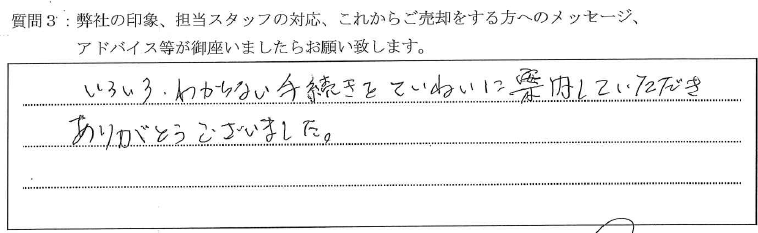 質問３：弊社の印象、担当スタッフの対応、これからご売却をする方へのメッセージ、
アドバイス等が御座いましたらお願い致します。
いろいろ、わからない手続きをていねいに案内していただき
ありがとうございました。